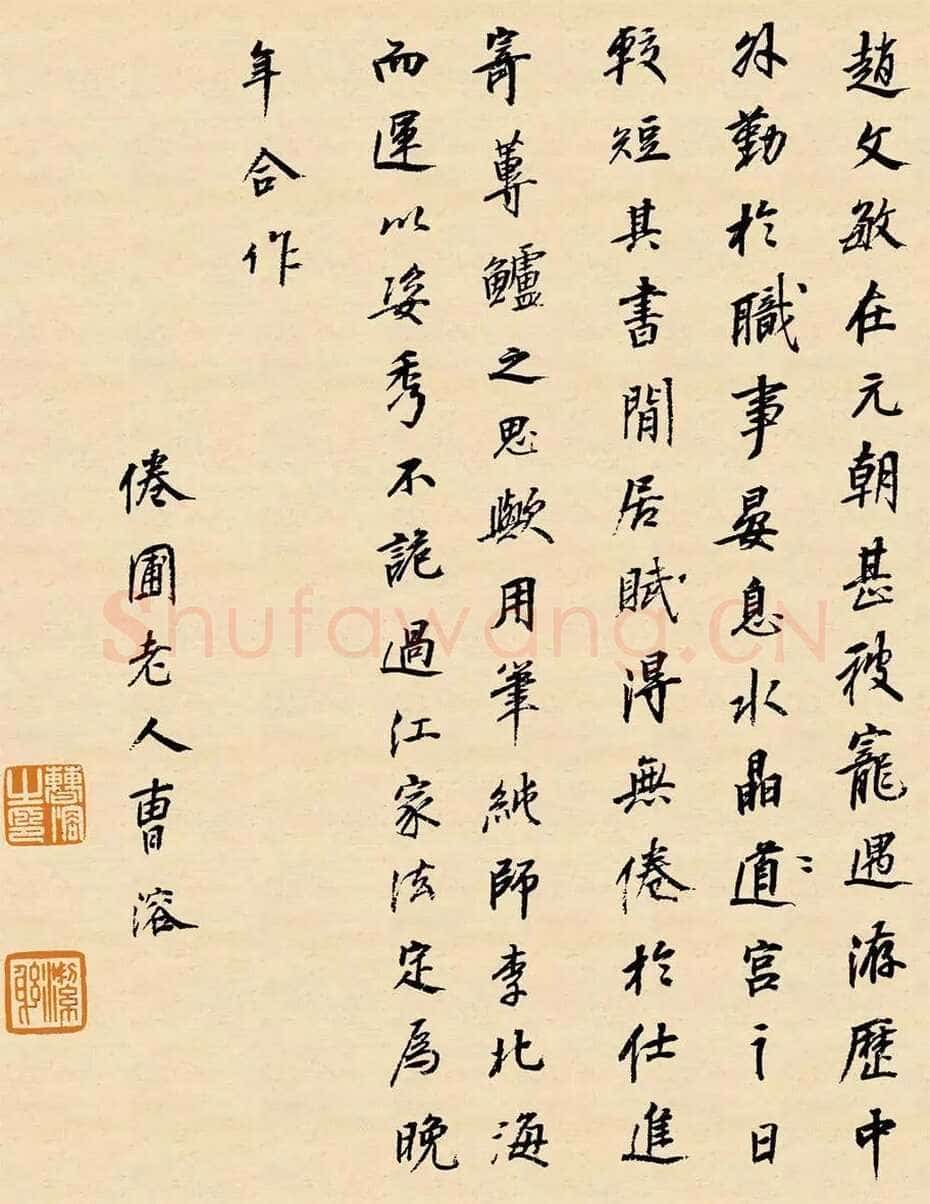 趙文敏在元朝甚被寵遇游歷中
外勤於職事晏息水晶道宮之日
較短其書閒居賦得無倦於仕進
寄蓴鱸之思歟用筆純師李北海
而運以姿秀不詭過江家法定為晚
年合作
倦圃老人曹溶
曹溶之印
潔躬
Shufawang.CN